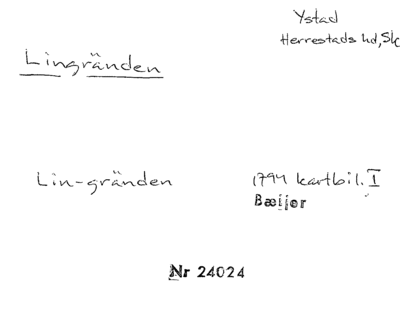 Ystad
Herrestads hd, Sk
Lingränden
Lin-gränden
1794 kartbil. I
Bæijer
Nr 24024